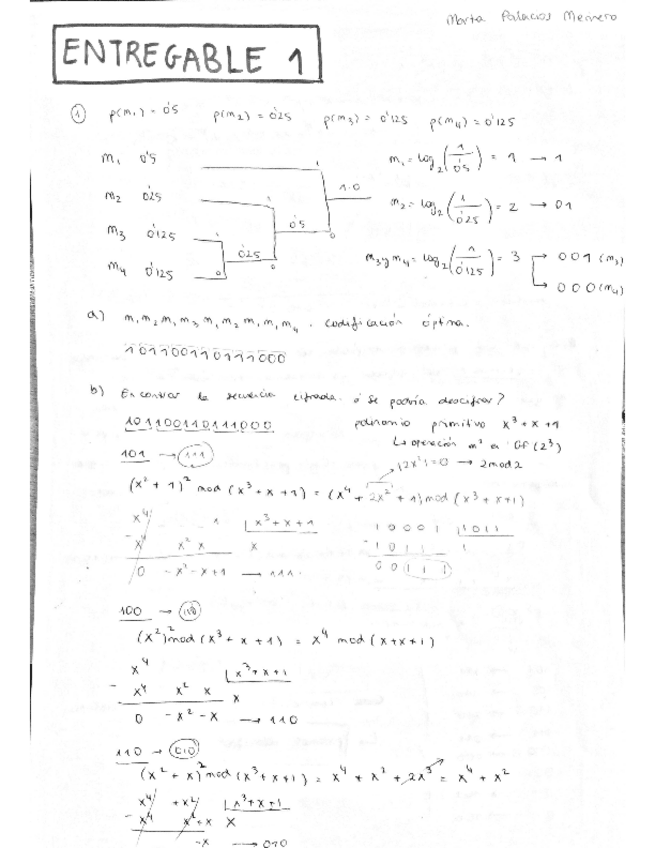 Marta Palacios Meinero
ENTREGABLE 1
① p(m₁) = 0'5 p(m₂) = 0'25 p(m₃) = 0'125 p(m₄) = 0'125
m₁ 0'5
m₂ 0'25
m₃ 0'125
m₄ 0'125
1
0
0'25
1
0
0'5
1
0
1.0
m₁ = log₂(1/0'5) = 1 → 1
m₂ = log₂(1/0'25) = 2 → 01
m₃ y m₄ = log₂(1/0'125) = 3 → 001 (m₃)
→ 000 (m₄)
a) m₁ m₂ m₁ m₃ m₁ m₂ m₁ m₁ m₄. codificación óptima.
101100110111000
b) Encontrar la secuencia cifrada. ó se podría descifrar?
101100110111000 polinomio primitivo x³ + x + 1
↳ operación m² en GF(2³)
101 → 111
(2x²) = 0 → 2 mod 2
(x² + 1)² mod (x³ + x + 1) = (x⁴ + 2x² + 1) mod (x³ + x + 1)
x⁴ 1 x³ + x + 1
- x⁴ x² x x
0 - x² - x + 1 → 111
10001 1011
- 1011 1
00111
100 → 110
(x²)² mod (x³ + x + 1) = x⁴ mod (x + x + 1)
x⁴ x³ + x + 1
- x⁴ x² x x
0 - x² - x → 110
110 → 010
(x² + x)² mod (x³ + x + 1) = x⁴ + x² + 2x³ = x⁴ + x²
x⁴ + x² x³ + x + 1
- x⁴ x² + x x
- x → 010